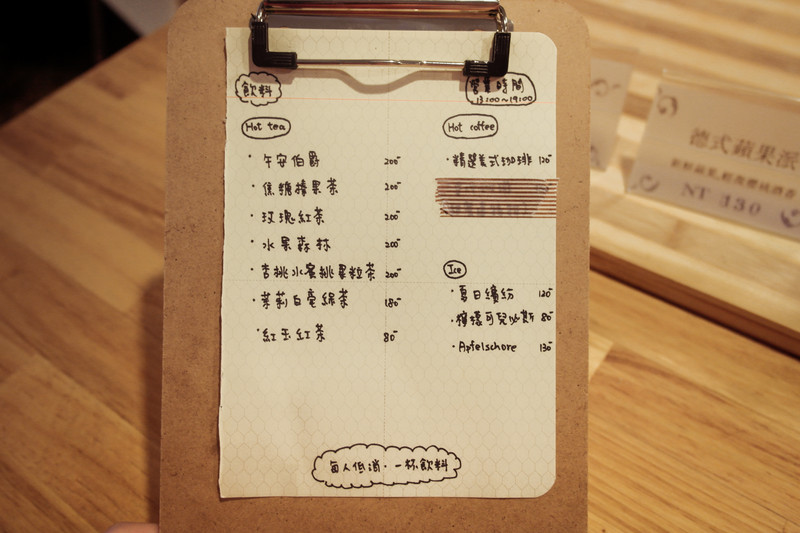 飲料
營業時間
13:00~19:00
Hot tea
午安伯爵 200-
焦糖榛果茶 200-
玫瑰紅茶 200-
水果森林 200-
杏桃水蜜桃果粒茶 200-
茉莉白毫綿茶 180-
紅玉紅茶 80-
Hot coffee
精選美式咖啡 120-
Ice
夏日繽紛 120-
檸檬可爾必斯 80-
Apfelschore 130-
每人低消·一杯飲料
德式蘋果派
NT 130